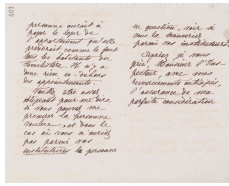 197
personne aurait à
payer le loyer de
l'appartement qu'elle
prendrait, comme le font
tous les habitants du
. Il n'y a
donc rien en dehors
des appointements.
Veuillez être assez
obligeant pour me dire
si vous pouvez me
procurer la personne
voulue, et dans le
cas où vous n'auriez
pas parmi vos
institutrices la personne
en question, voir si
vous la trouveriez
parmi vos instituteurs.
Agréez je vous
prie, Monsieur l'Ins-
pecteur avec mes
remerciements anticipés,
l'assurance de ma
parfaite considération